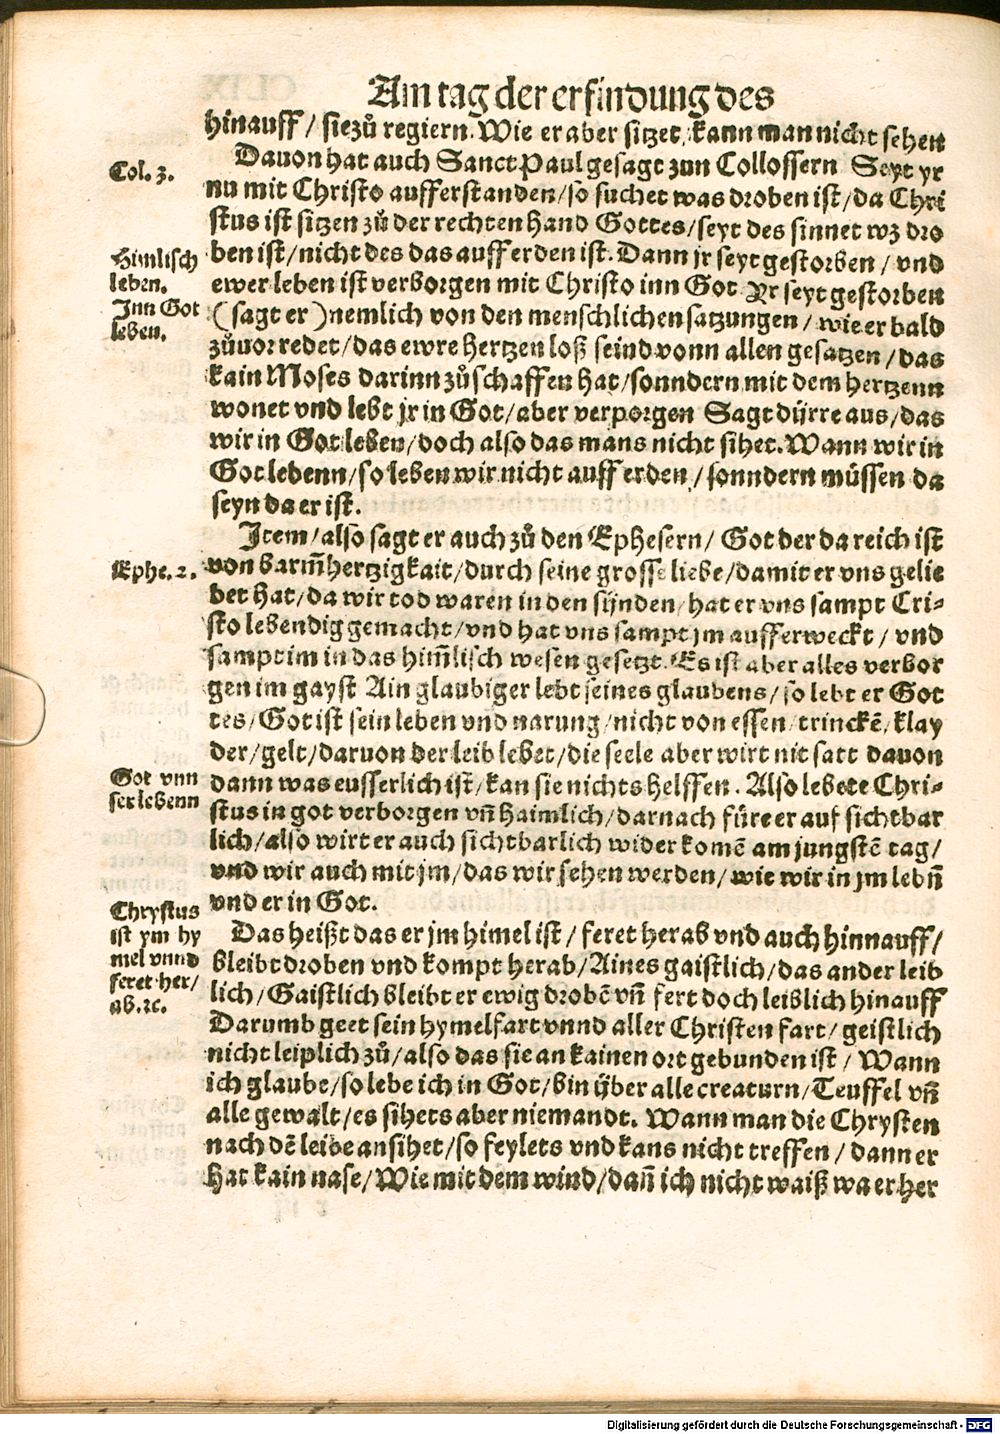 Am tag der erfindung des
hinauff / sie zů regiern. Wie er aber sitzet, kann man nicht sehen
Dauon hat auch Sanct Paul gesagt zun Collossern Seyt yr
Col. 3.
nu mit Christo aufferstanden/so suchet was droben ist/da Chri
stus ist sitzen zů der rechten hand Gottes/seyt des sinnet wz dro
Himlisch
leben.
ben ist/nicht des das auff erden ist. Dann jr seyt gestorben / vnd
ewer leben ist verborgen mit Christo inn Got Yr seyt gestorben
Inn Got
leben.
(sagt er) nemlich von den menschlichen satzungen / wie er bald
zůuor redet/das ewre hertzen loß seind vonn allen gesatzen / das
kain Moses darinn zůschaffen hat/sonndern mit dem hertzenn
wonet vnd lebt jr in Got/aber verporgen Sagt dürre aus/das
wir in Got leben/doch also das mans nicht sihet. Wann wir in
Got lebenn/so leben wir nicht auff erden / sonndern müssen da
seyn da er ist.
Item/also sagt er auch zů den Ephesern/ Got der da reich ist
Ephe. 2.
von barm̃hertzigkait/durch seine grosse liebe/damit er vns gelie
bet hat/da wir tod waren in den sünden/hat er vns sampt Cri-
sto lebendig gemacht/vnd hat vns sampt jm aufferweckt / vnd
sampt im in das him̃lisch wesen gesetzt. Es ist aber alles verbor
gen im gayst Ain glaubiger lebt seines glaubens/so lebt er Got
tes/Got ist sein leben vnd narung/nicht von essen/trinckẽ/klay
der/gelt/daruon der leib lebet/die seele aber wirt nit satt dauon
Got vnn
ser lebenn
dann was eusserlich ist/kan sie nichts helffen. Also lebete Chri-
stus in got verborgen vñ haimlich/darnach füre er auf sichtbar
lich/also wirt er auch sichtbarlich wider komẽ am jungstẽ tag/
vnd wir auch mit jm/das wir sehen werden/wie wir in jm lebñ
vnd er in Got.
Chrystus
ist ym hy
mel vnnd
feret her/
ab.ꝛc.
Das heißt das er jm himel ist / feret herab vnd auch hinnauff/
bleibt droben vnd kompt herab/Aines gaistlich/das ander leib
lich/Gaistlich bleibt er ewig drobẽ vñ fert doch leiblich hinauff
Darumb geet sein hymelfart vnnd aller Christen fart/ geistlich
nicht leiplich zů/also das sie an kainen ort gebunden ist / Wann
ich glaube/so lebe ich in Got/bin über alle creaturn/Teuffel vñ
alle gewalt/es sihets aber niemandt. Wann man die Chrysten
nach dẽ leibe ansihet/so feylets vnd kans nicht treffen / dann er
hat kain nase/Wie mit dem wind/dañ ich nicht waiß wa er her
Digitalisierung gefördert durch die Deutsche Forschungsgemeinschaft - DFG